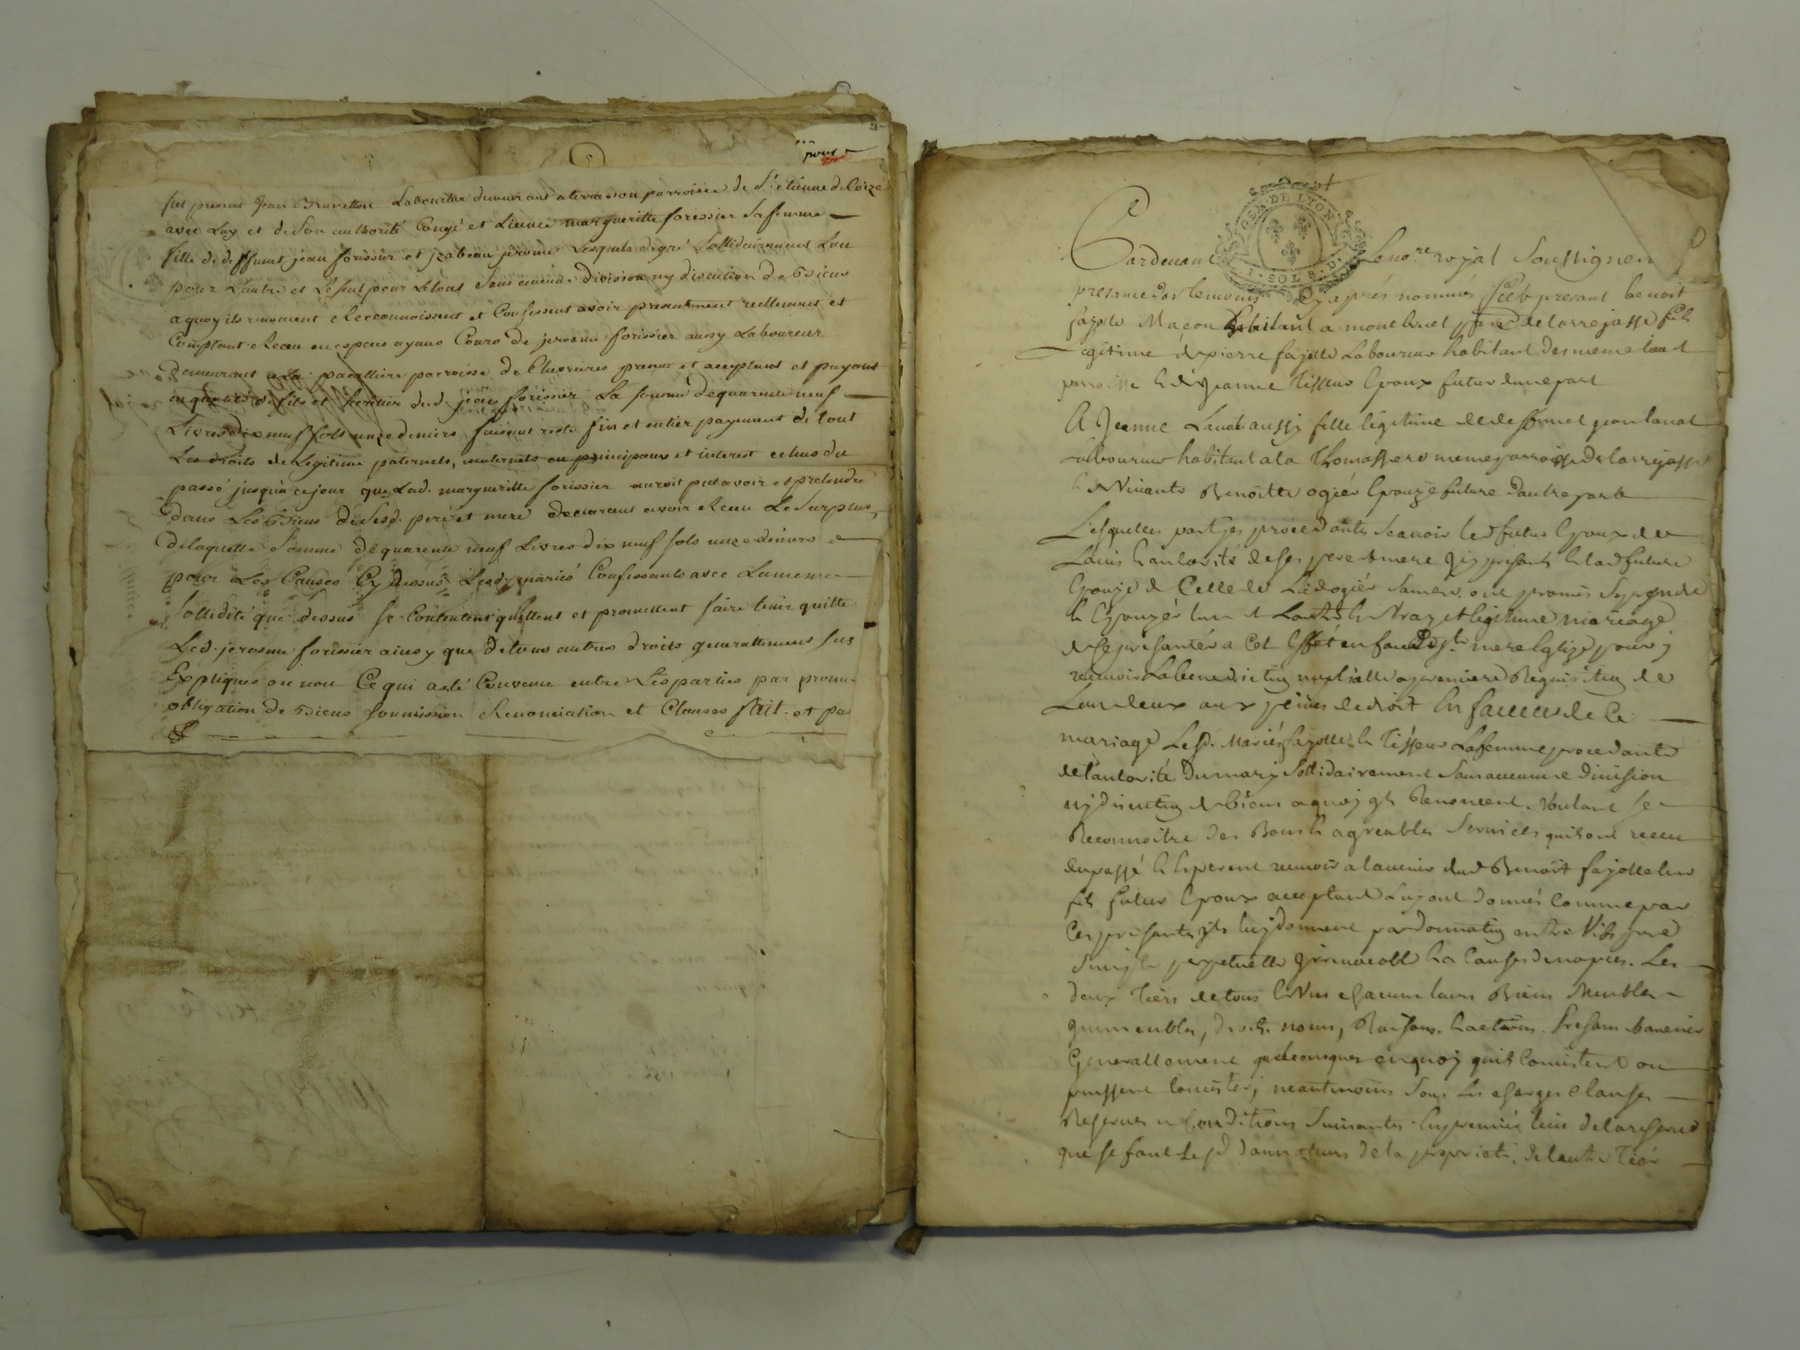 pour
fut present Jean Brunetton Laboureur demeurant a terrasson parroisse de St etienne de Coize
avec Luy et de Son authorité Congé et Licence margueritte forissier Sa femme
fille de deffunts jean forissier et jzabeau jerome Lesquels de gré Sollidairement L'un
pour L'autre et Le seul pour Le tout Sans aucune division ny discution de Biens
a quoy ils renoncent Reconnoissent et Confessent avoir presentement reellement et
Comptant Receu en especes ayant Cours de jerosme forissier aussy Laboureur
Demeurant a la parroisse de present et acceptant et payant
en qualité de fils et heritier dud. jean forissier La somme de quarante neuf
Livres dix neuf sols unze deniers faisant reste fin et entier payement de tout
Les droits de Legitime paternels, maternels en principaux et interest echus du
passé jusqu'a ce jour que Lad. margueritte forissier auroit peu avoir et pretendre
dans Les Biens de Sesd. pere et mere declarant avoir Receu Le Surplus,
de laquelle Somme de quarante neuf Livres dix neuf sols unze deniers
pour Les Causes Cy dessus Lesd. mariés Confessants avec La meme
Sollidité que dessus Se Contentent quittent et promettent faire tenir quitte
Led. jerosme forissier ainsy que de tous autres droits generallement sus
Expliqués ou non Ce qui a eté Convenu entre Les parties par promesse
obligation de Biens Soumission Renonciation et Clauses fait et pa
GEN. DE LYON
1. SOL 8. D.
Pardevant Le no.re royal Soussigné
presance des temoins cy aprés nommés fut present benoit
fayolle Maçon habitant a montbruel ppe de larrajasse fils
Legitime de pierre fayolle Laboureur habitant des meme lieu et
parroisse et de Jeanne Tisseur Epoux futur d'une part
A Jeanne Lanat aussy fille légitime de deffunct jean lanat
Labboureur habitant a la Thomassere meme parroisse de larrajasse
et de Vivante Benoitte ogier Epouze future d'autre part
Lesquelles parties procedantes Scavoir led futur Epoux de
L'avis et authorité de Ses pere et mere Icy presents et lad future
Epouze de Celle de Lad ogier Sa mere ont promis Se prendre
et Epouzer L'un et L'autre en Vray et legitime mariage
de Se presenter a Cet Effet en face de ste mere Eglize pour y
recevoir La benediction nuptialle a premiere Requisition de
L'un d'eux aux peines de droit En faveur de Ce
mariage Lesd. Mariés fayolle et Tisseur La femme procedante
de l'autorité Du mary Sollidairement Sans aucune division
ny discution de biens a quoy ils Renoncent. Voulant Se
Reconnoitre des Bons et agreables Services quils ont receu
du passé et Esperent recevoir a l'avenir dud Benoit fayolle leur
fils futur Epoux acceptant Luy ont donnés Comme par
Ces presantes ils luy donnent par donnation entre Vifs pure
Simple perpetuelle Irrevocable Les
deux Tiers de tous et Uns Chacuns leurs Biens Meubles
Immeubles, droits noms, Raisons, et actions. Presans et avenir
Generallement quelconques en quoy quils Consistent ou
puissent Consister; neantmoins Sous Les charges Clauses
Reserves et Conditions Suivantes En premier lieu de la reserve
que Se font Lesd donnateurs de la proprieté de l'autre Tier